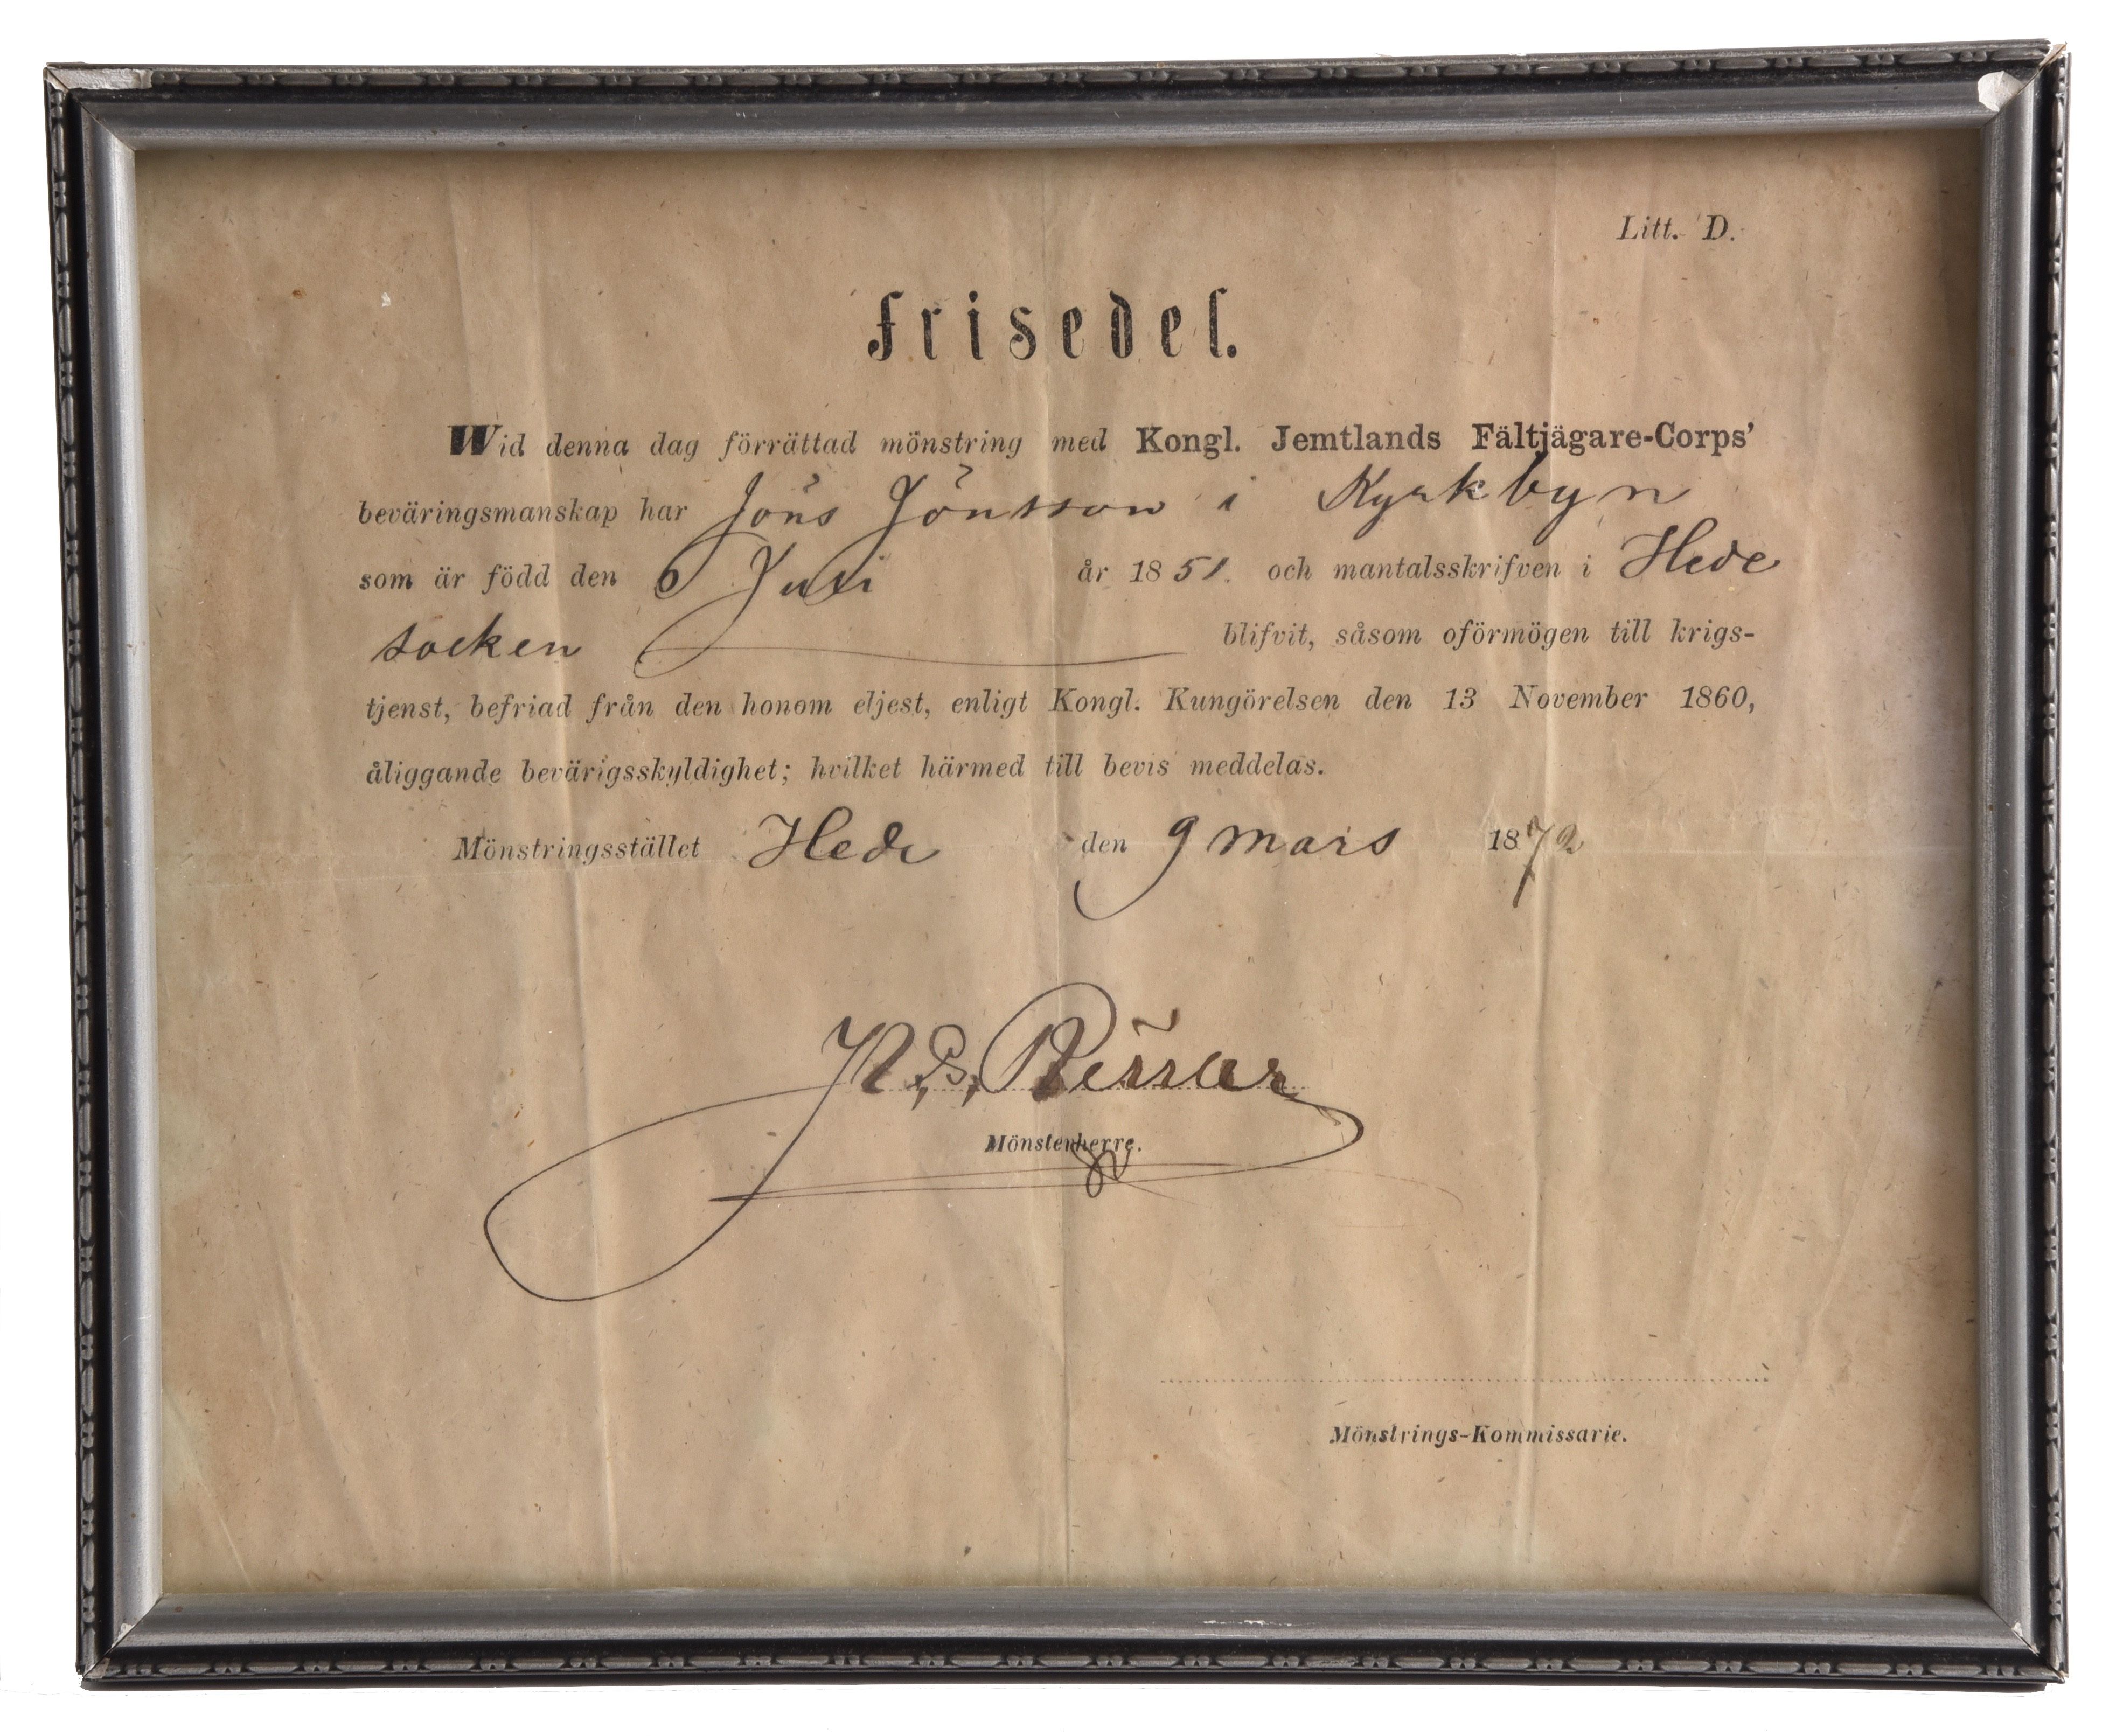 Litt. D.
Frisedel.
Wid denna dag förrättad mönstring med Kongl. Jemtlands Fältjägare-Corps'
beväringsmanskap har Jöns Jönsson i Kyrkbyn
som är född den 6 Juli år 1851. och mantalsskrifven i Hede
socken blifvit, såsom oförmögen till krigs-
tjenst, befriad från den honom eljest, enligt Kongl. Kungörelsen den 13 November 1860,
åliggande bevärigsskyldighet; hvilket härmed till bevis meddelas.
Mönstringsstället Hede den 9 mars 1872
Mönsterherre.
Mönstrings-Kommissarie.